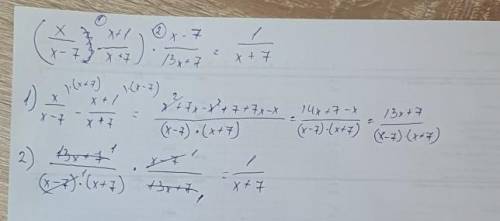 (x/(x-7) - ① (x+1)/(x+7)) · ② (x-7)/(13x+7) = 1/(x+7)
1) x/(x-7) ^{)·(x+7)} - (x+1)/(x+7) ^{)·(x-7)} = (x²+7x-x²+7+7x-x)/((x-7)·(x+7)) = (14x+7-x)/((x-7)·(x+7)) = (13x+7)/((x-7)·(x+7))
2) (13x+7)¹/((x-7)¹·(x+7)) · (x-7)¹/(13x+7)₁ = 1/(x+7)